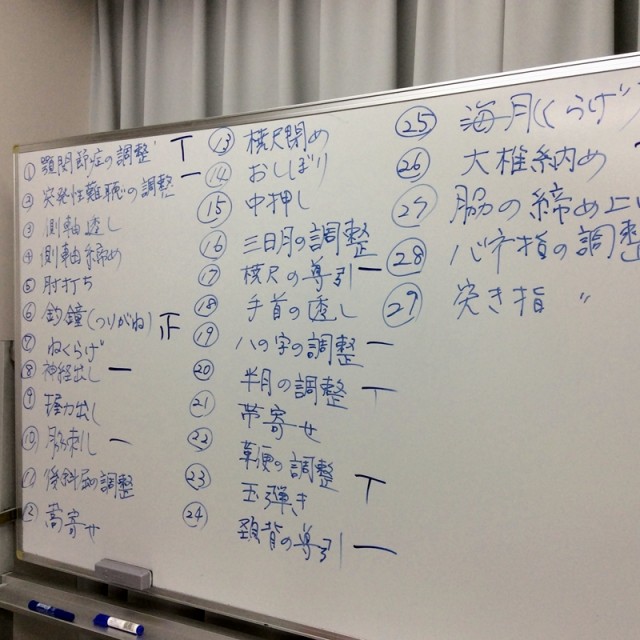 ① 顎関節症の調整 丅
② 突発性難聴の調整 一
③ 側軸透し
④ 側軸締め
⑤ 肘打ち
⑥ 釣鐘(つりがね) 正
⑦ ねくらげ
⑧ 神経出し 一
⑨ 握力出し
⑩ 脇刺し 一
⑪ 後斜屈の調整
⑫ 寄せ
⑬ 横尺閉め
⑭ おしぼり
⑮ 中押し
⑯ 三日月の調整
⑰ 横尺の導引 一
⑱ 手首の透し
⑲ ハの字の調整 一
⑳ 半月の調整 丅
㉑ 帯寄せ
㉒ 草便の調整
㉓ 玉弾き 丅
㉔ 頚背の導引 一
㉕ 海月(くらげ)
㉖ 大椎納め
㉗ 脇の締め上
㉘ バネ指の調整
㉙ 突き指 〃